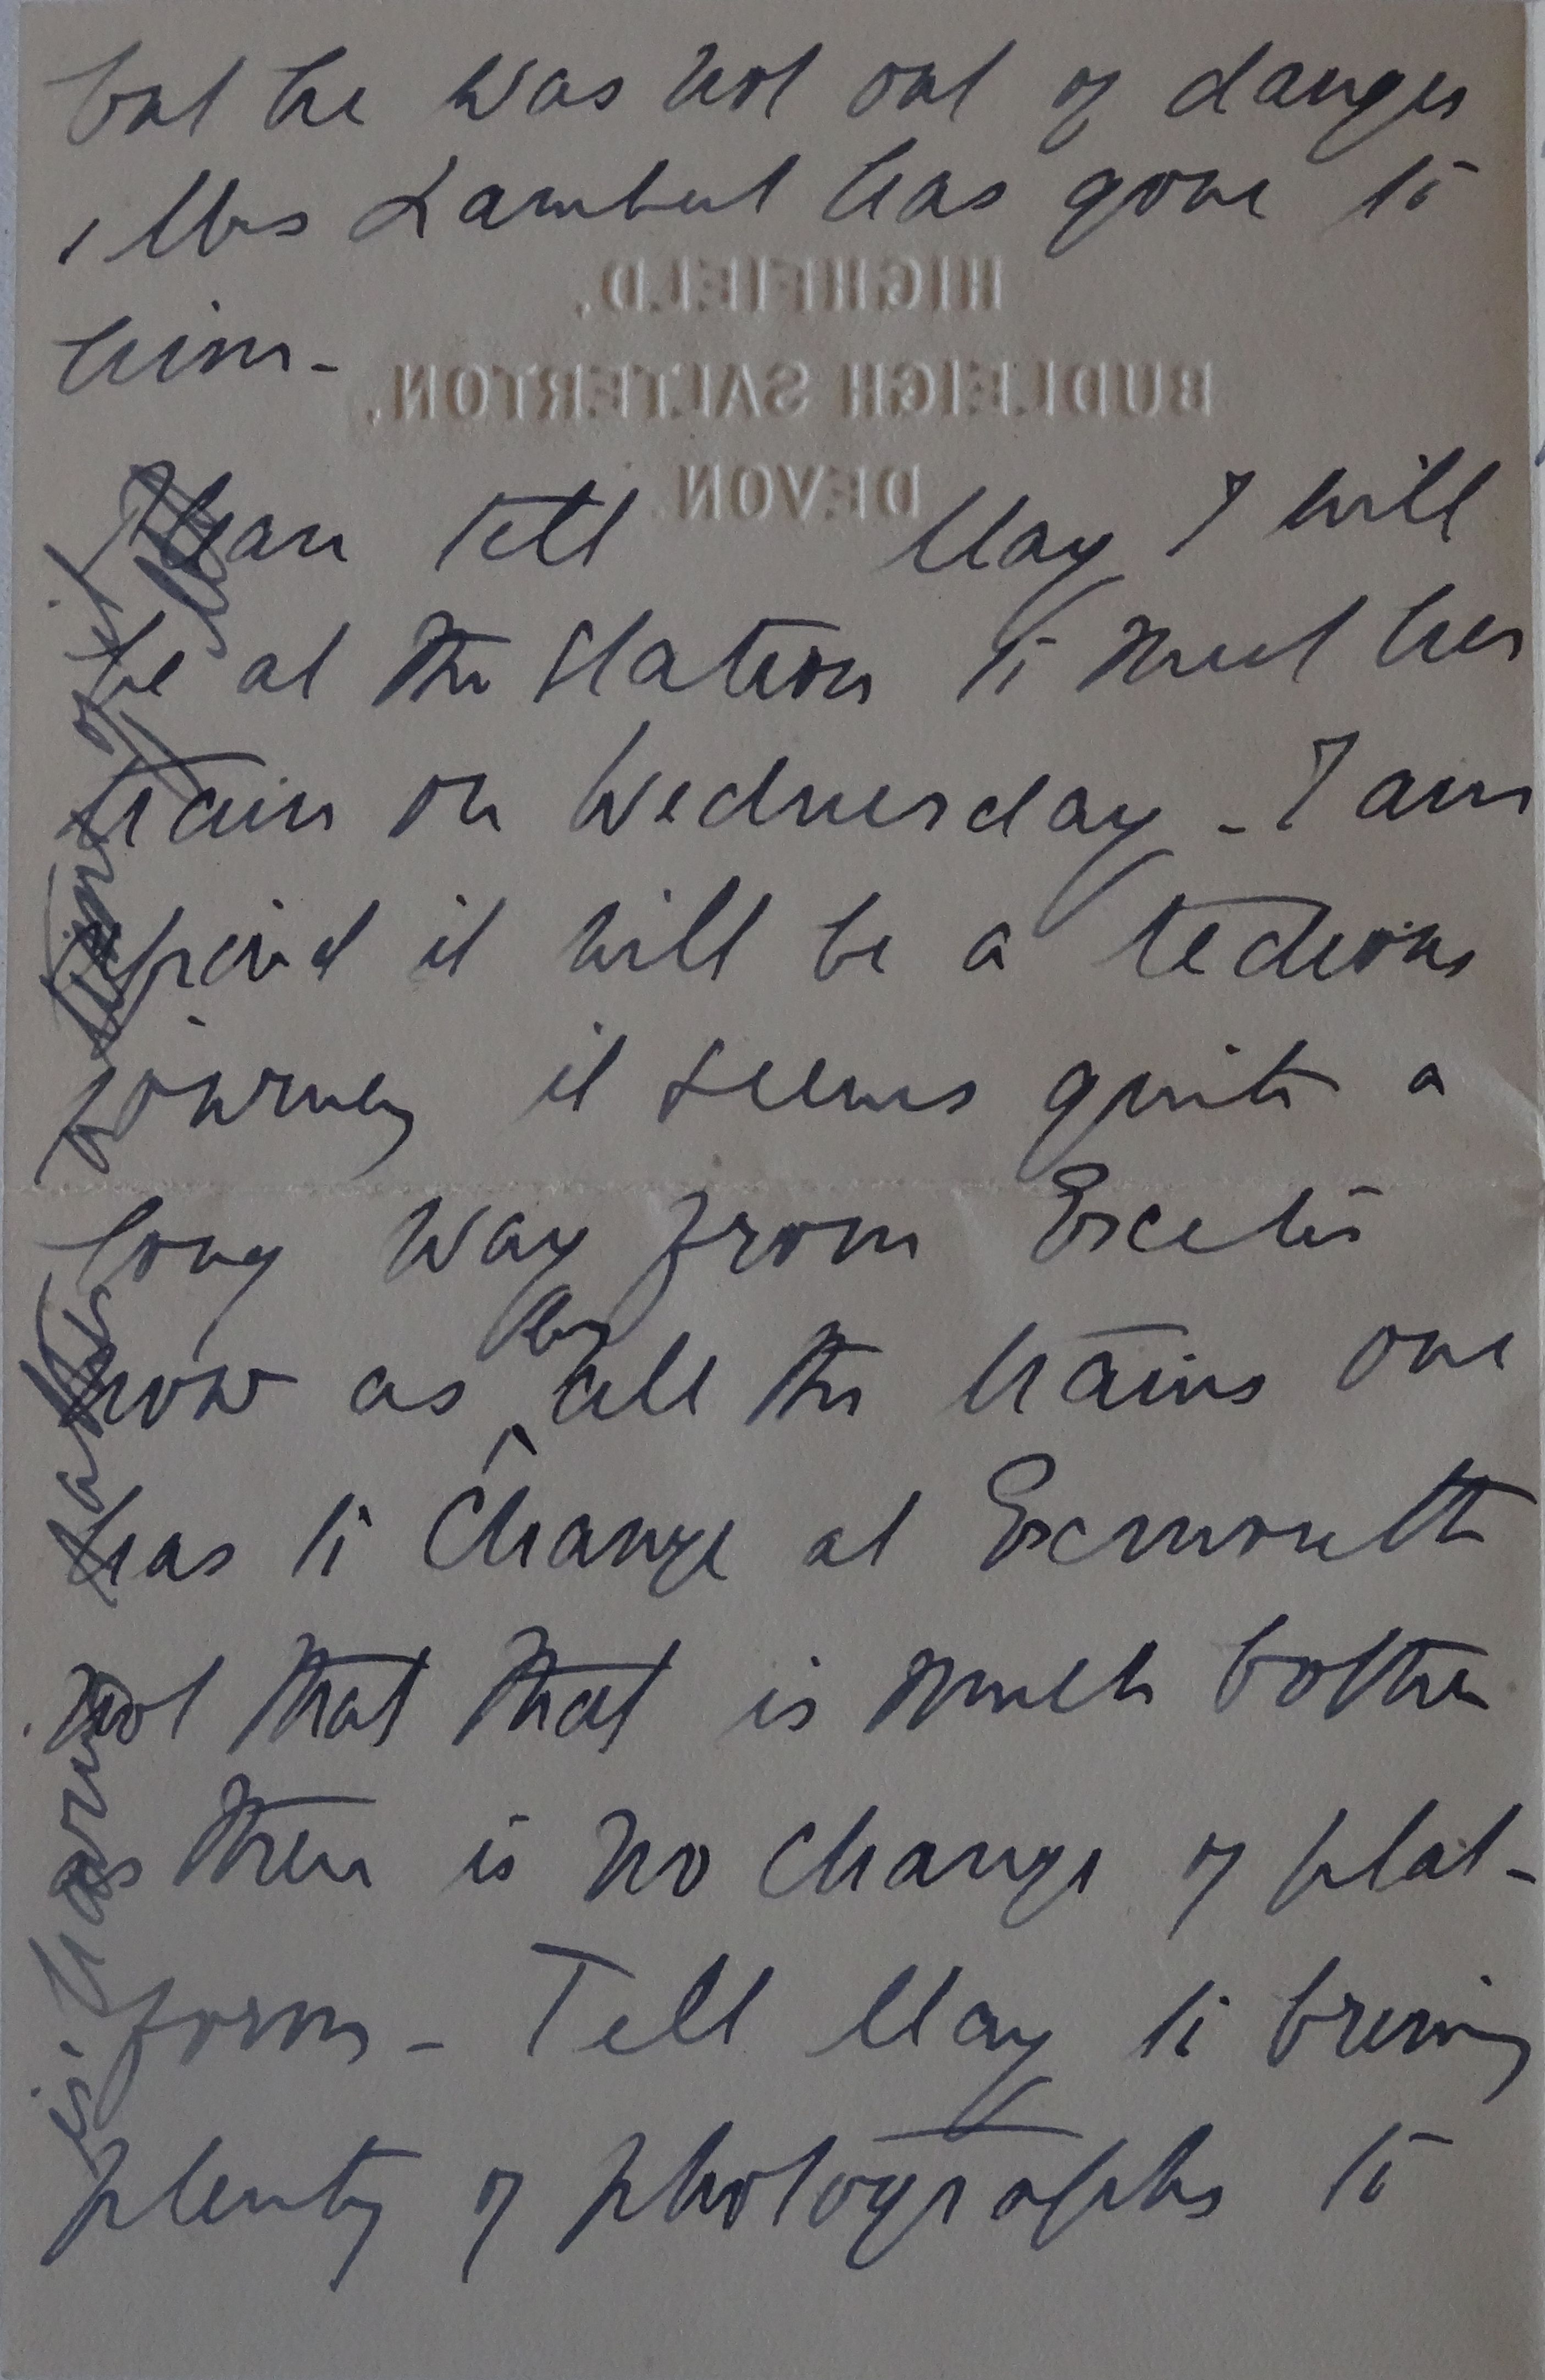 but he was not out of danger
, Mrs Lambert has gone to
him -
HIGHFIELD,
BUDLEIGH SALTERTON,
DEVON
tell May I will
be at the Station to meet her
train on Wednesday - I am
afraid it will be a tedious
journey it seems quite a
long way from Exeter
by
now as all the trains one
has to Change at Exmouth
not that that is much bother
as there is no change of plat-
form - Tell May to bring
plenty of photographs to
is having rather
time of it